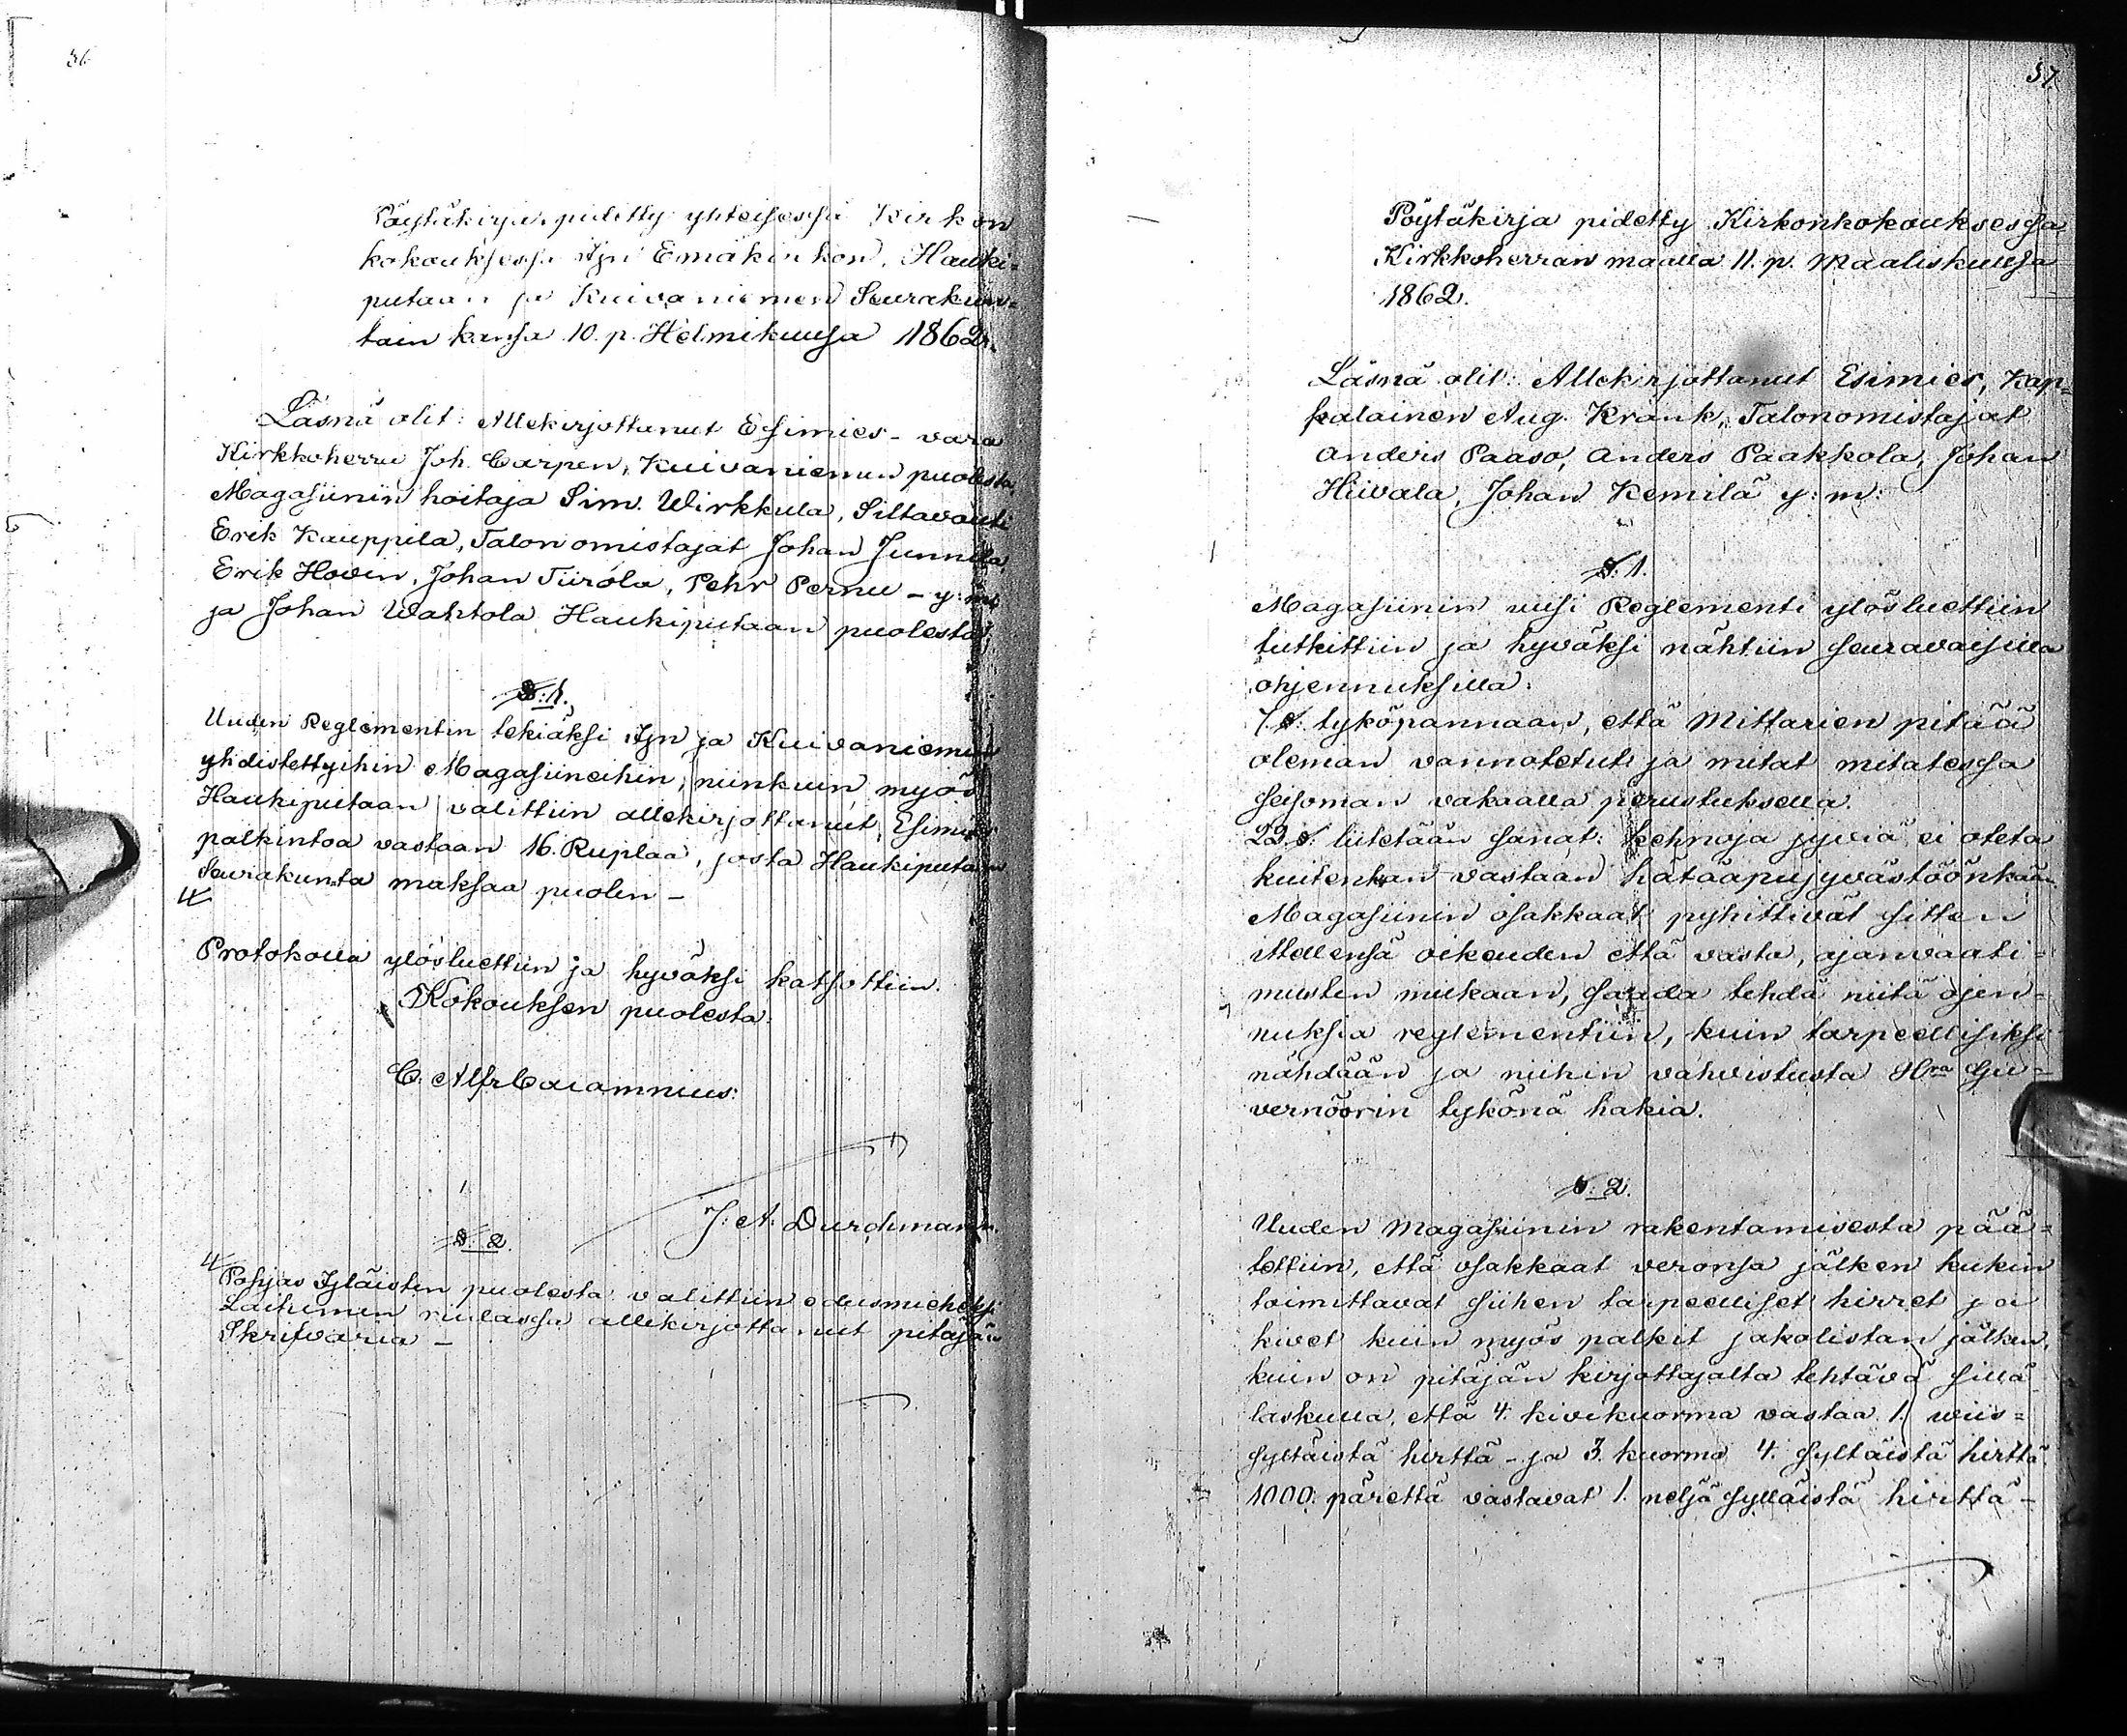 36
Pöytäkirja pidetty yhteisessä Kirkon
kokouksessa Ijn Emäkirkon, Hauki-
putaan ja Kuivaniemen Seurakun-
tain kansa 10. p. Helmikuusa 1862.
Läsnä olit: Allekirjottanut Esimies - vara
Kirkkoherra Joh. Carpen, Kuivaniemen puolesta,
Magasiinin hoitaja Sim. Wirkkula, Siltavouti
Erik Kauppila, Talonomistajat Johan Junnila
Erik Hovin, Johan Tiirola, Pehr Pernu - y: m:
ja Johan Wahtola Haukiputaan puolesta.
§: 1.
Uuden Reglementin tekiäksi Ijn ja Kuivaniemen
yhdistettyihin Magasiineihin, niinkuin myös
Haukiputaan valittiin allekirjottanut Esimies
palkintoa vastaan 16. Ruplaa, josta Haukiputaan
Seurakunta maksaa puolen -
Protokolla ylösluettiin ja hyväksi katsottiin.
Kokouksen puolesta:
C. Alfr Caiamnius:
J: A: Durchman
§: 2.
Pohjas Ijläisten puolesta valittiin edusmieheksi
allekirjottanut pitäjän
Skrifvaria -
37.
Pöytäkirja pidetty Kirkonkokouksessa
Kirkkoherran maalla 11. p. Maaliskuusa
1862.
Läsnä olit: Allekirjottanut Esimies, Kap-
palainen Aug. Krank, Talonomistajat
Anders Paaso, Anders Paakkola, Johan
Hiivala, Johan Kemilä y: m:
§: 1.
Magasiinin uusi Reglementi ylösluettiin
tutkittiin ja hyväksi nähtiin seuravaisilla
ohjennuksilla:
7 §: tyköpannaan, että Mittarien pitää
oleman vannotetut ja mitat mitatessa
seisoman vakaalla perustuksella.
22 §: liitetään sanat: kehnoja jyviä ei oteta
kuitenkan vastaan hätäapujyvästöönkään
Magasiinin osakkaat pyhittivät sitten
ittellensä oikeuden että vasta, ajanvaati-
musten mukaan, saada tehdä niitä ojen-
nuksia reglementiin, kuin tarpeellisiksi
nähdään ja niihin vahvistusta Hra Gu-
vernöörin tykönä hakia.
§: 2.
Uuden Magasiinin rakentamisesta pää-
tettiin, että osakkaat veronsa jälken kukin
toimittavat siihen tarpeelliset hirret ja
kivet kuin myös palkit jakolistan jälken,
kuin on pitäjän kirjottajalta tehtävä sillä
laskulla, että 4. kivikuorma vastaa 1. wiis-
syltäistä hirttä - ja 3. kuorma 4. syltäistä hirttä.
1000: pärettä vastavat 1. neljä syltäistä hirttä -